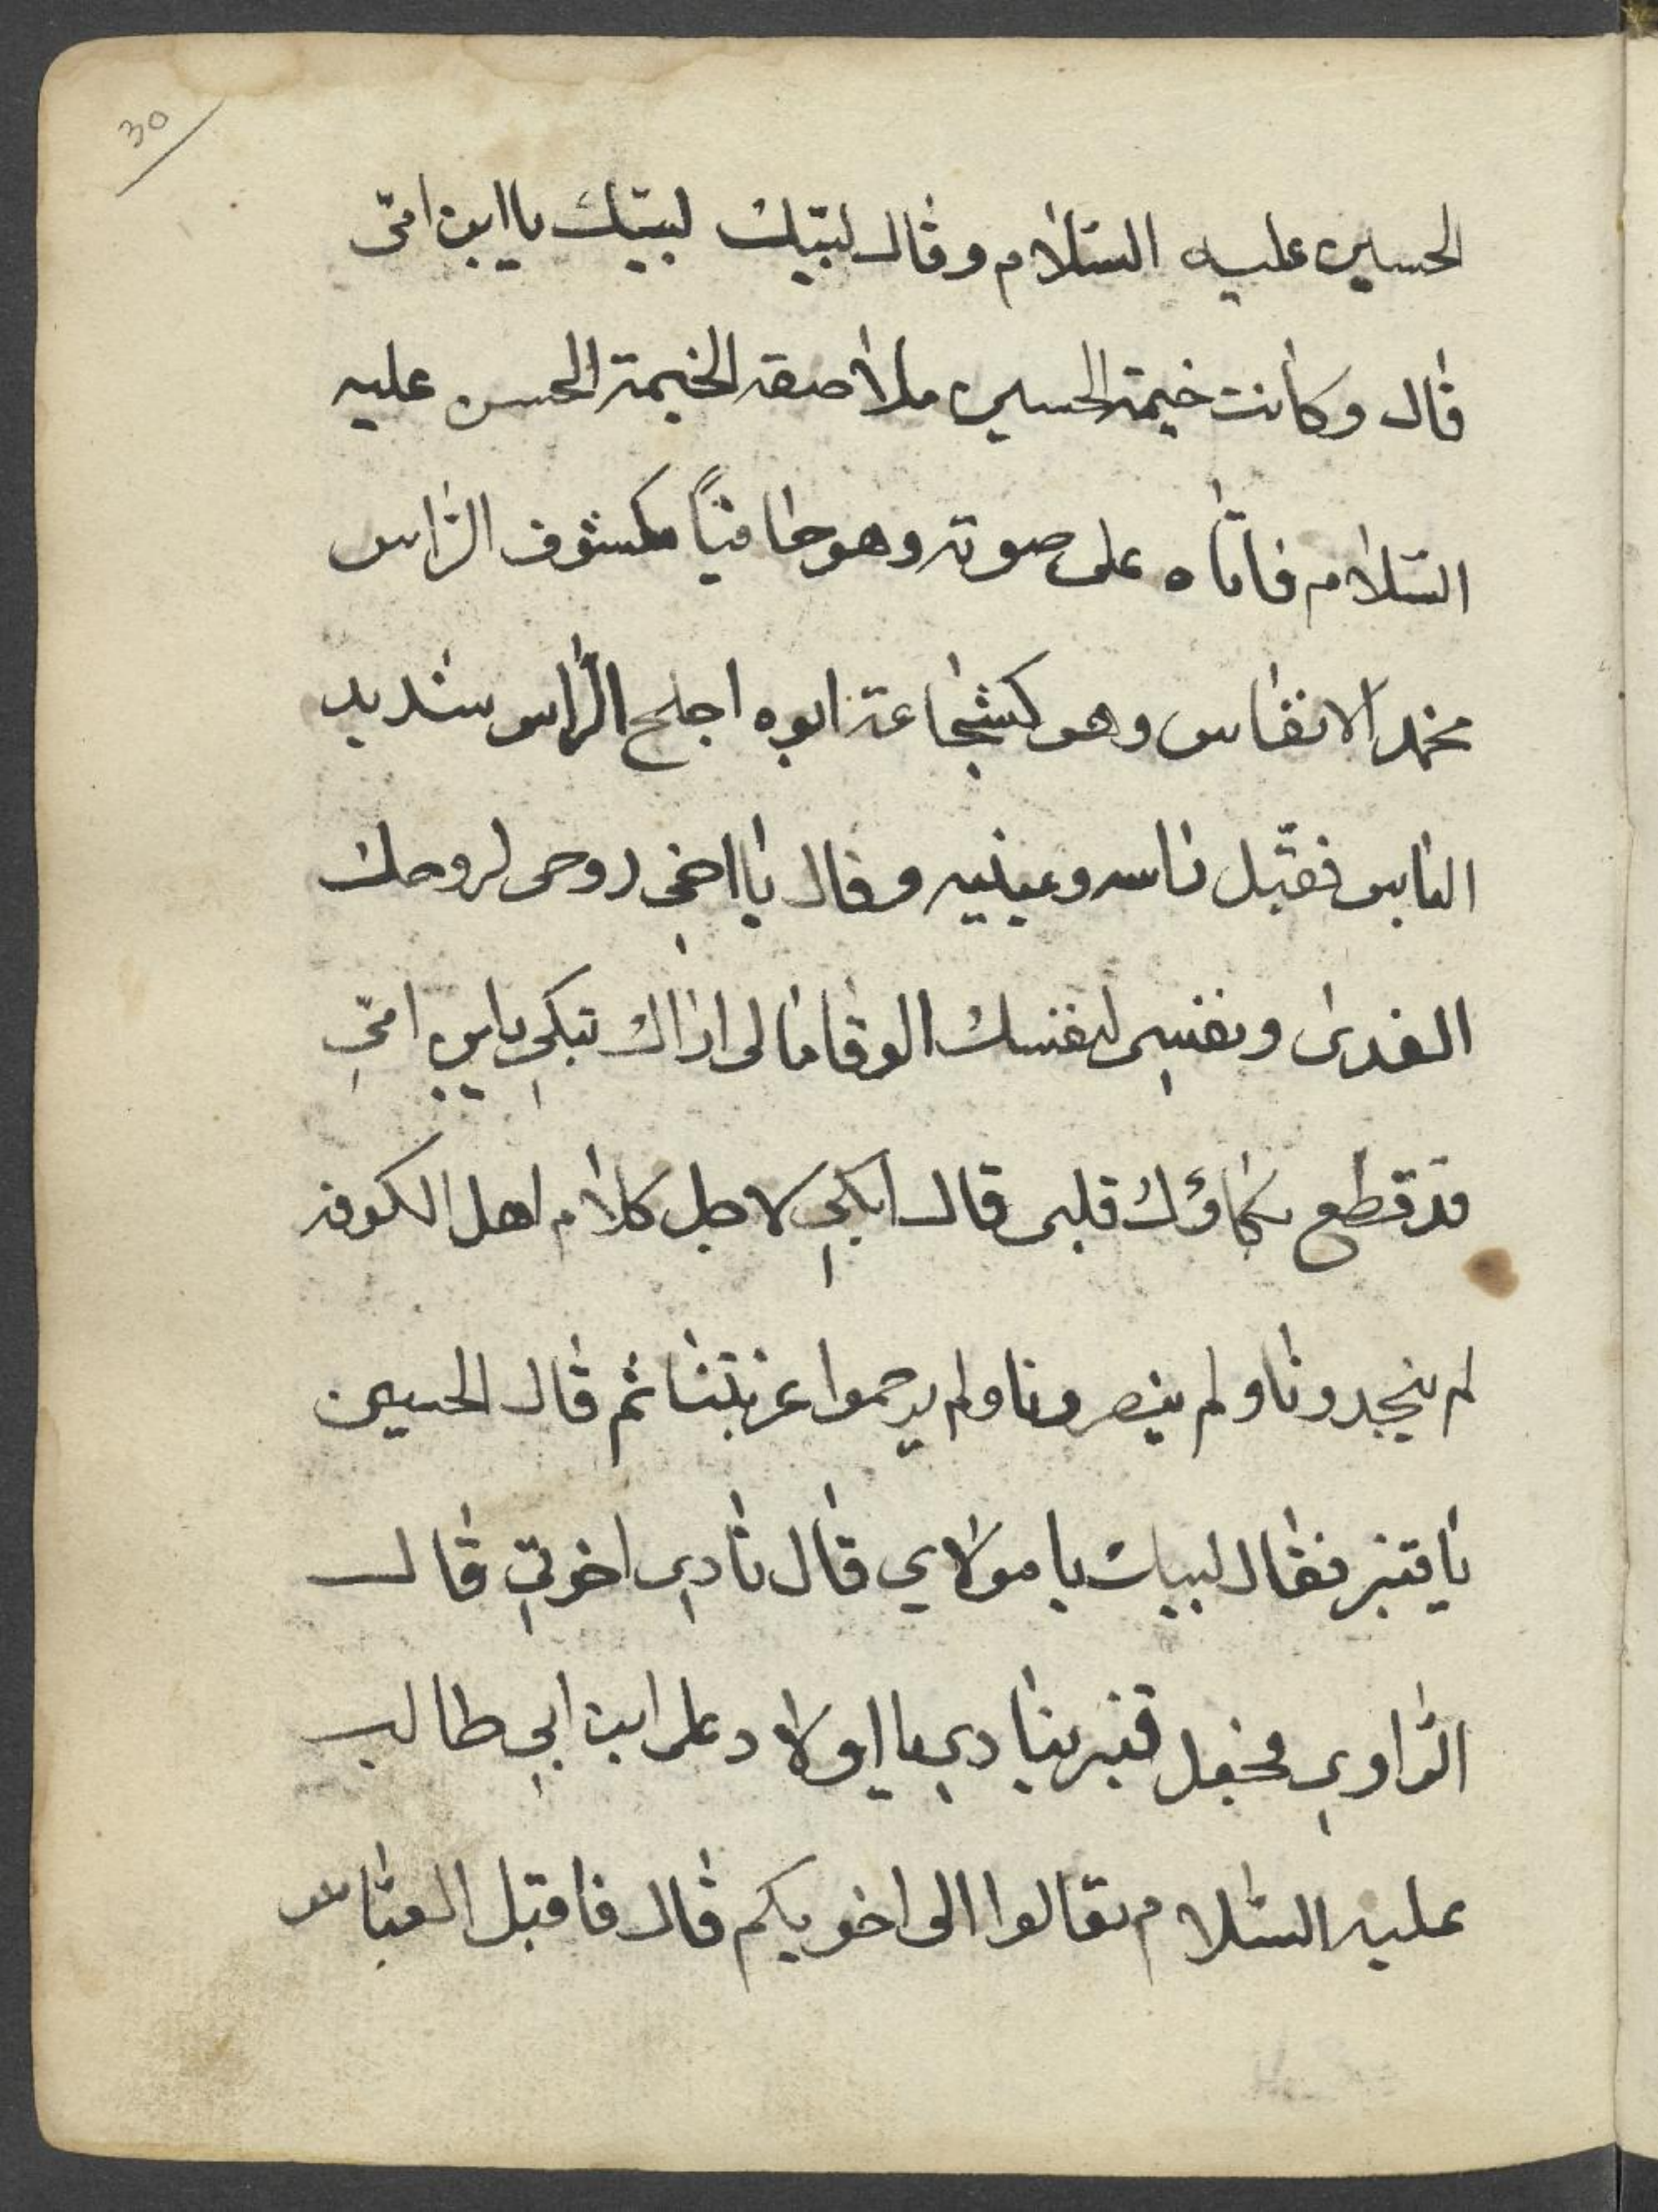 30
الحسين عليه السّلام وقال لبّيك لبيّك ياابن امّى
قال وكانت خيمة الحسين ملاصقه الخيمة الحسن عليه
السّلام فاتاه على صوته وهو حافياً مكشوف الرّاس
مخمد الانفاس وهو كشجاعة ابوه اجلح الرّاس شديد
الباس فقبّل راسه وعينيه وقال يا اخى روحى لروحك
الفدى ونفسى لنفسك الوقا مالى اراك تبكي يابن امّي
قد قطع بكاؤك قلبى قال ابكي لاجل كلام اهل الكوفه
لم ينجدونا ولم ينصرونا ولم يرحموا غربتنا ثم قال الحسين
يا قنبر فقال لبيك يا مولاي قال نادي اخوتي قال
الرّاوي فجعل قنبر ينادي يا اولاد على ابن ابي طالب
عليه السّلام تعالوا الى اخويكم قال فاقبل العبّاس